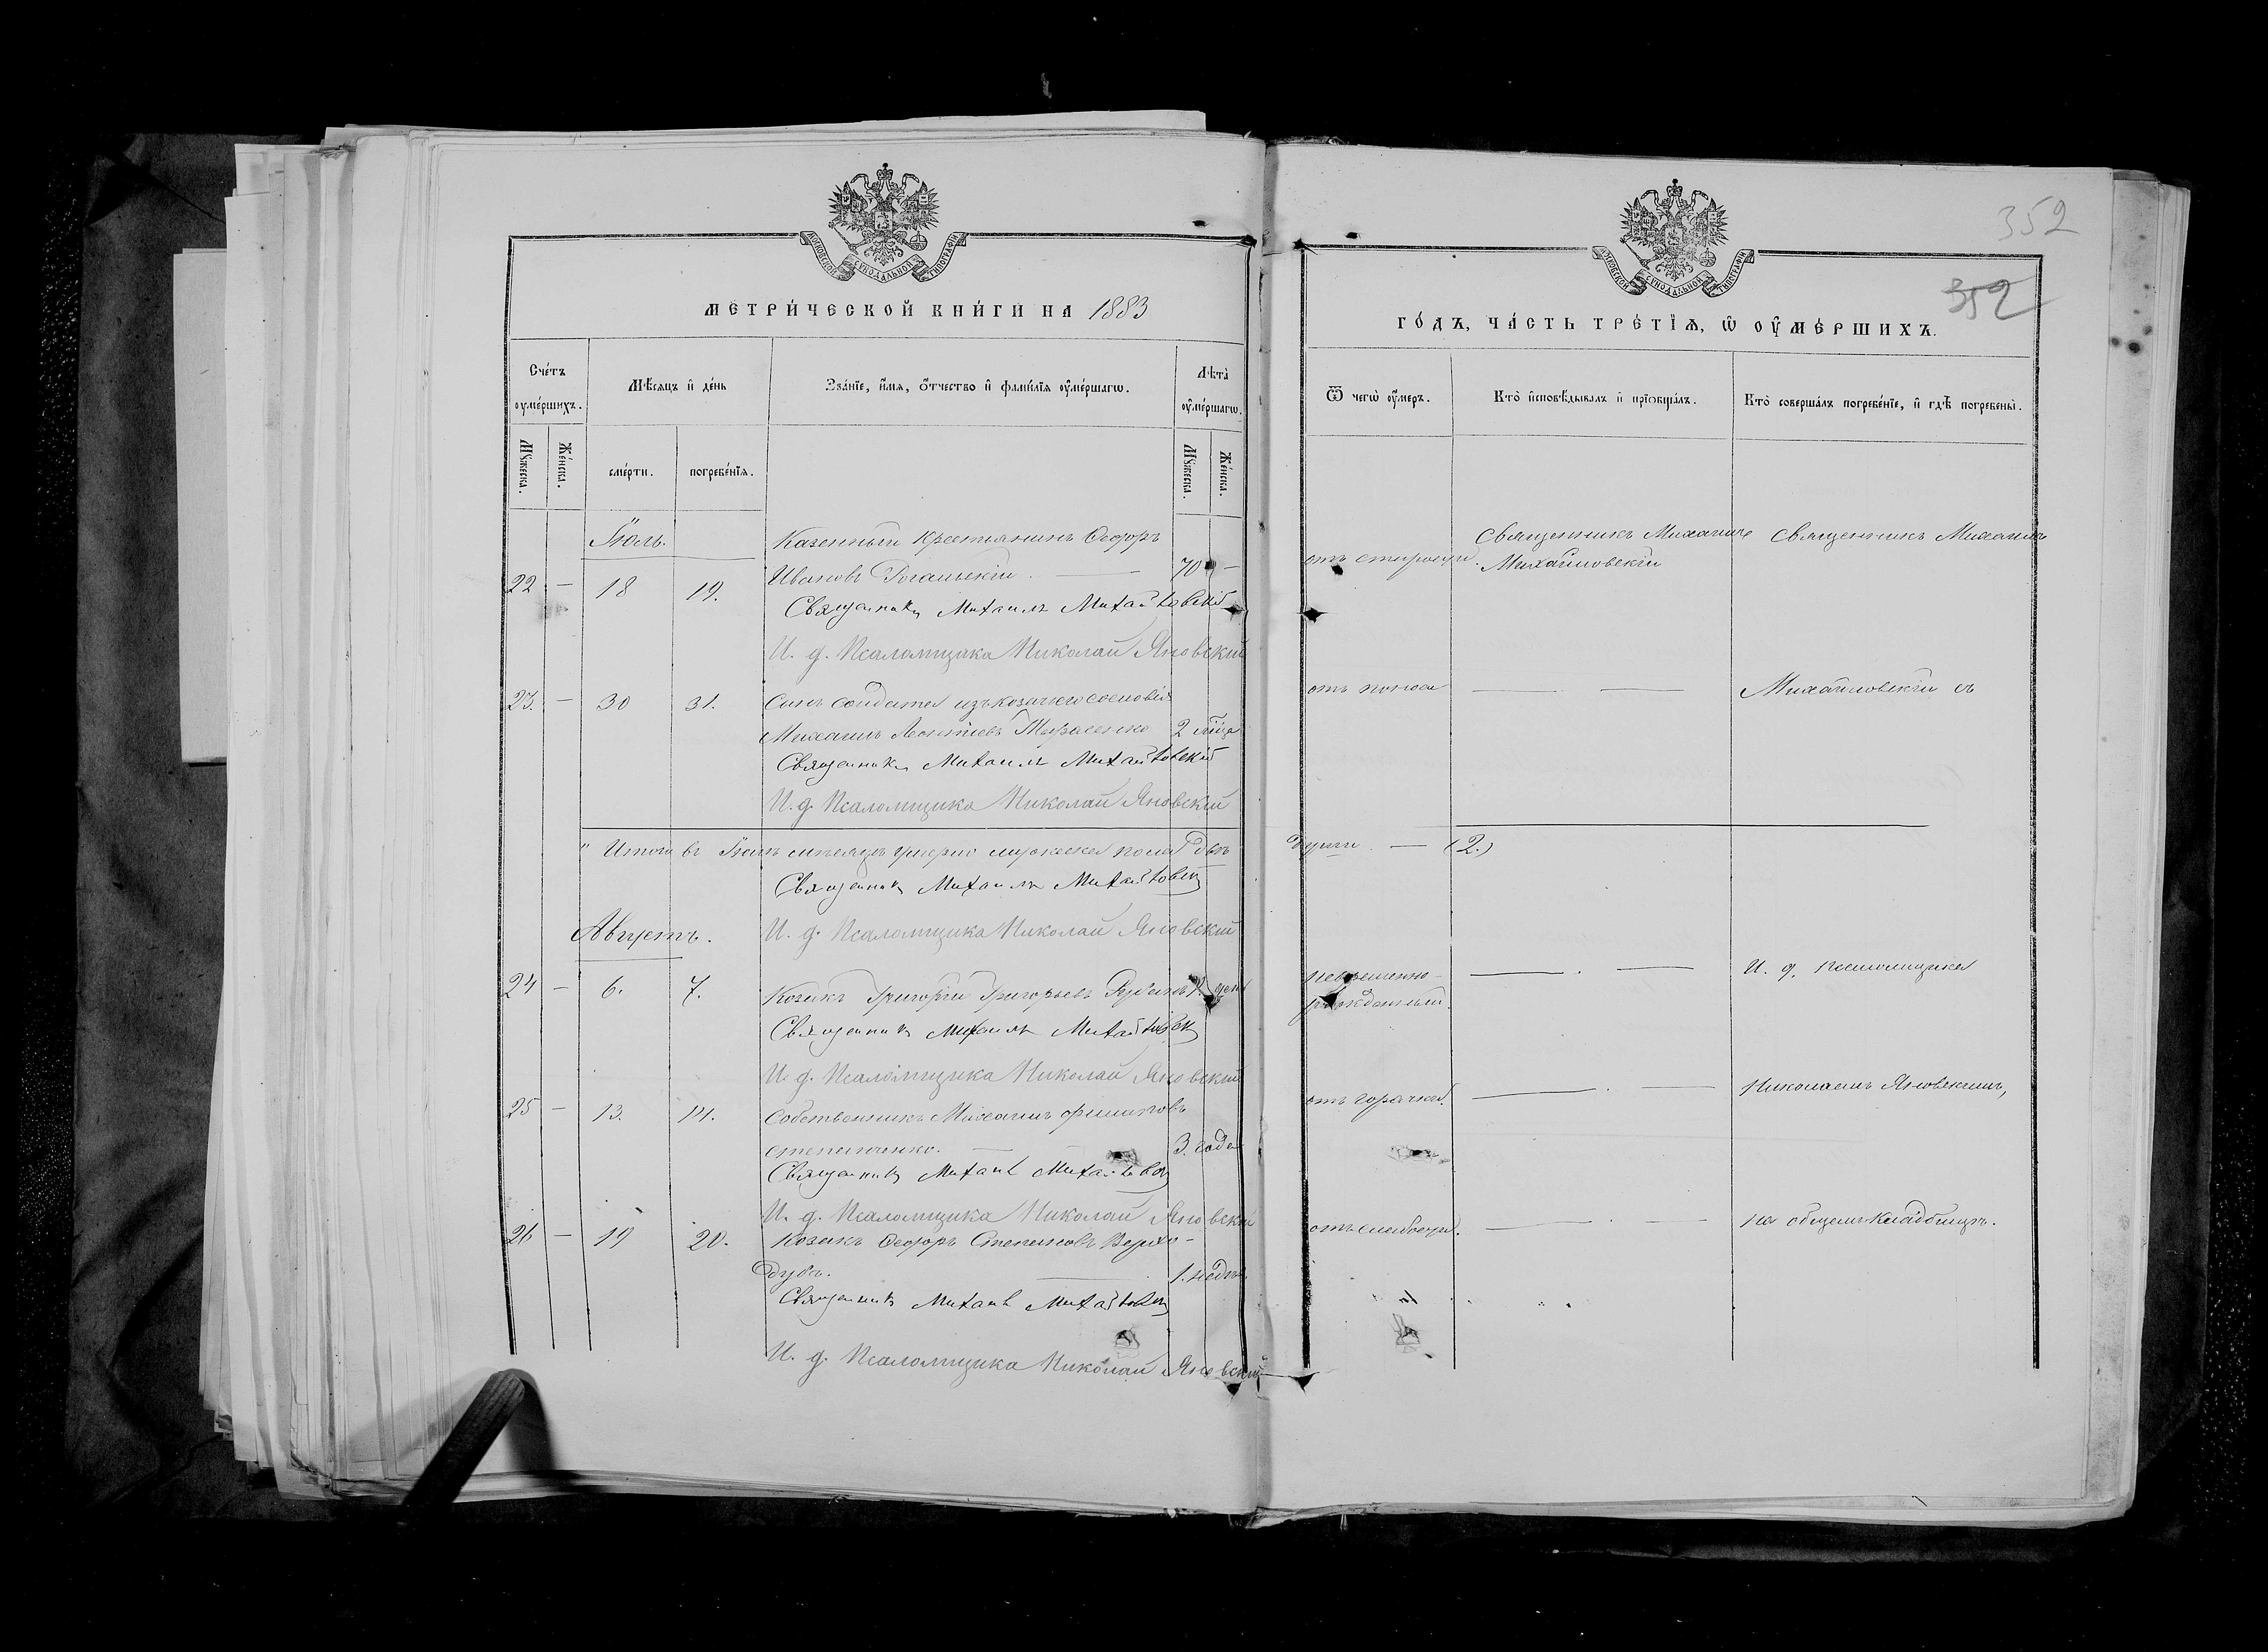 МОСКОВСКОЙ СѴНОДАЛЬНОЙ ТИПОГРАФІИ
МЕТРИ́ЧЕСКОЙ КНИ́ГИ НА 1883
Счéтъ ᲂумéршихъ.
Мѣ́сяцъ и҆ де́нь
Зва́нїе, и҆́мя, ѻ҆́тчество и҆ фами́лїя ᲂу҆ме́ршагѡ.
Лѣта̀ ᲂу҆ме́ршагѡ.
Мꙋ́жеска.
Же́нска.
сме́рти.
погребе́нїя.
Мꙋ́жеска.
Же́нска.
Іюль.
Казенный крестьянинъ Ѳеодоръ
22 — 18 19. Ивановъ — 70 —
Священникъ Михаилъ Михайловскій
И. д. Псаломщика Николай Яновский
23. — 30 31. Сынъ солдата изъ козачьяго сословія
Михаилъ Леонтіевъ Тарасенко 2 мѣца
Священникъ Михаилъ Михайловскій
И. д. Псаломщика Николай Яновскій
" Итого въ Іюлѣ мѣсяцѣ умерло мужеска пола двѣ
Священникъ Михаилъ Михайловск
Августъ.
И. д. Псаломщика Николай Яновский
24 — 6. 7. Козакъ Григорій Григорьевъ 1. день
Священникъ Михаилъ Михайловск
И. д. Псаломщика Николай Яновский
25 — 13. 14. Собственникъ Михаилъ Филиповъ
Степаненко. — 3. года
Священникъ Михаил Михайловск
И. д. Псаломщика Николай Яновский
26 — 19 20. Козакъ Ѳеодоръ Степановъ Верхо-
дубъ. — 1. недѣл
Священникъ Михаил Михайловск
И. д. Псаломщика Николай Яновский
352
МОСКОВСКОЙ СѴНОДАЛЬНОЙ ТИПОГРАФІИ
352
ГО́ДЪ, ЧА́СТЬ ТРЕ́ТЇѦ, Ѡ҆ ОУ҆МЕ́РШИХЪ.
Ѿ чегѡ̀ ᲂу҆́меръ.
Кто̀ и҆сповѣ́дывалъ и҆ прїѡбща́лъ.
Кто̀ соверша́лъ погребе́нїе, и҆ гдѣ̀ погребены̀.
отъ старости. Священникъ Михаилъ Михайловскій Священникъ Михаилъ
отъ поноса — — Михайловскій съ
души. — (2.)
невременно- рожденный. — . — И. д. псаломщика
отъ горячки. — . — Николаемъ Яновскимъ,
отъ слабости. — . — на общемъ кладбищѣ.